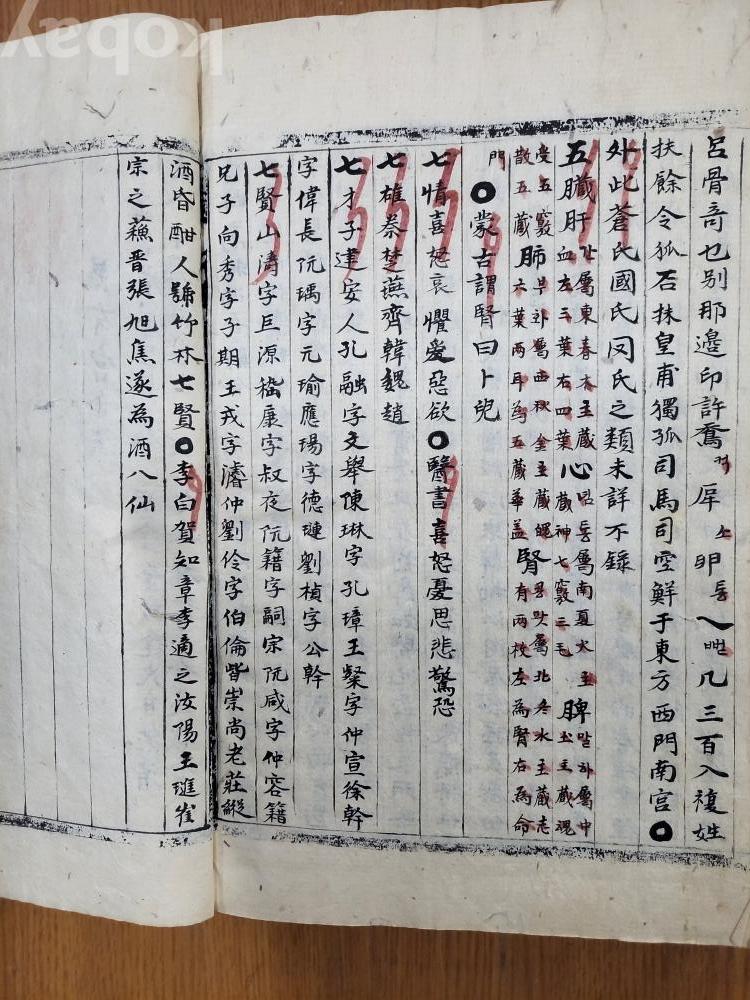 呂骨奇乜别那邉印許喬격厈소卵동乀㖙凡三百八複姓
扶餘令狐石抹皇甫獨孤司馬司空鮮于東方西門南宫〇
外此蒼氏國氏罔氏之類未詳不錄
五臓肝간屬東春木主蔵 心
血左三葉右四葉蔵神七竅三毛
屬南夏火主 脾屬中土主蔵魂
受五竅 肺부하屬西秋金主蔵 腎屬北冬水主蔵志
散五蔵 六葉兩耳為五蔵華盖 有兩枚左為腎右為命
門〇蒙古謂腎曰卜兒
七情喜怒哀懼愛惡欲〇醫書喜怒憂思悲驚恐
七雄秦楚燕齊韓魏趙
七才子建安人孔融字文舉陳琳字孔璋王粲字仲宣徐幹
字偉長阮瑀字元瑜應瑒字德璉劉楨字公幹
七賢山濤字巨源嵇康字叔夜阮籍字嗣宗阮咸字仲容籍
兄子向秀字子期王戎字濬仲劉伶字伯倫皆崇尚老莊縱
酒昏酣人號竹林七賢〇李白賀知章李適之汝陽王璡崔
宗之蘇晋張旭焦遂為酒八仙
kobay